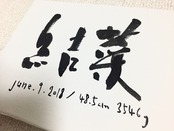 結菜
june.9.2018/48.5cm 3546g